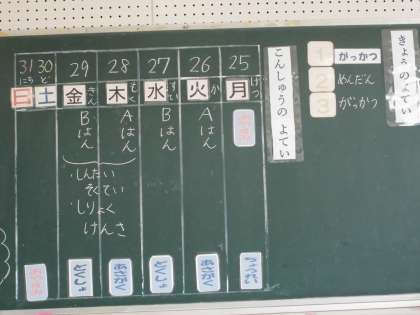 きょうの よてい
1 がっかつ
2 めんだん
3 がっかつ
こんしゅうの よてい
25
月 げつ
26
火 か
Aはん
27
水 すい
Bはん
28
木 もく
Aはん
29
金 きん
Bはん
しんたい
そくてい
しりょく
けんさ
30
ど
土
31
にち
日